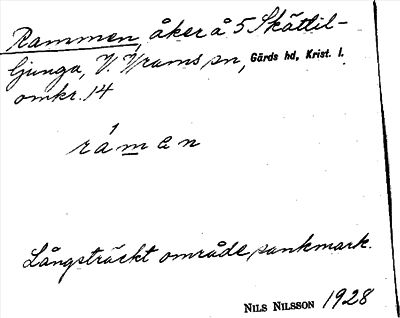 Rammen, åker å 5 Skättil-
ljunga, V. Vrams sn, Gärds hd, Krist. l.
omkr. 14
rámen
Långsträckt område, sankmark.
NILS NILSSON 1928